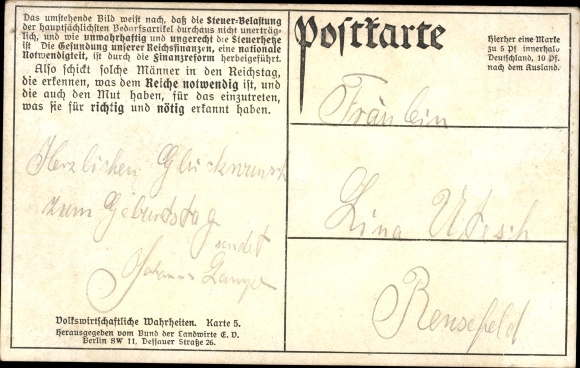 Das umstehende Bild weist nach, daß die Steuer-Belastung
der hauptsächlichsten Bedarfsartikel durchaus nicht unerträg-
lich, und wie unwahrhaftig und ungerecht die Steuerhetze
ist. Die Gesundung unserer Reichsfinanzen, eine nationale
Notwendigkeit, ist durch die Finanzreform herbeigeführt.
Also schickt solche Männer in den Reichstag,
die erkennen, was dem Reiche notwendig ist, und
die auch den Mut haben, für das einzutreten,
was sie für richtig und nötig erkannt haben.
Herzlichen Glückwunsch
zum Geburtstag
sendet
Volkswirtschaftliche Wahrheiten. Karte 5.
Herausgegeben vom Bund der Landwirte E. V.
Berlin SW 11, Dessauer Straße 26.
Postkarte
Hierher eine Marke
zu 5 Pf innerhalb
Deutschland, 10 Pf.
nach dem Ausland.
Fräulein
Lina Utesch
Rensefeld